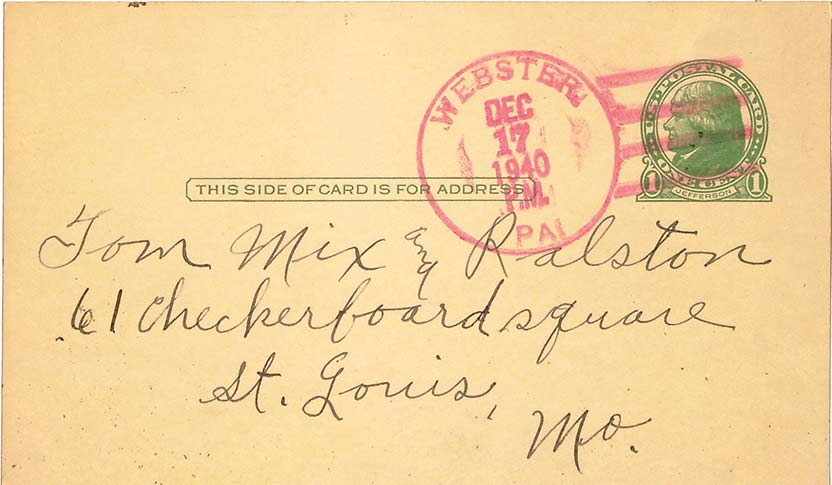 WEBSTER,
DEC
17
1940
P.M.
PA.
U.S. POSTAL CARD
ONE CENT
1 JEFFERSON 1
THIS SIDE OF CARD IS FOR ADDRESS
Tom Mix and Ralston
61 checkerboard square
St. Louis,
Mo.